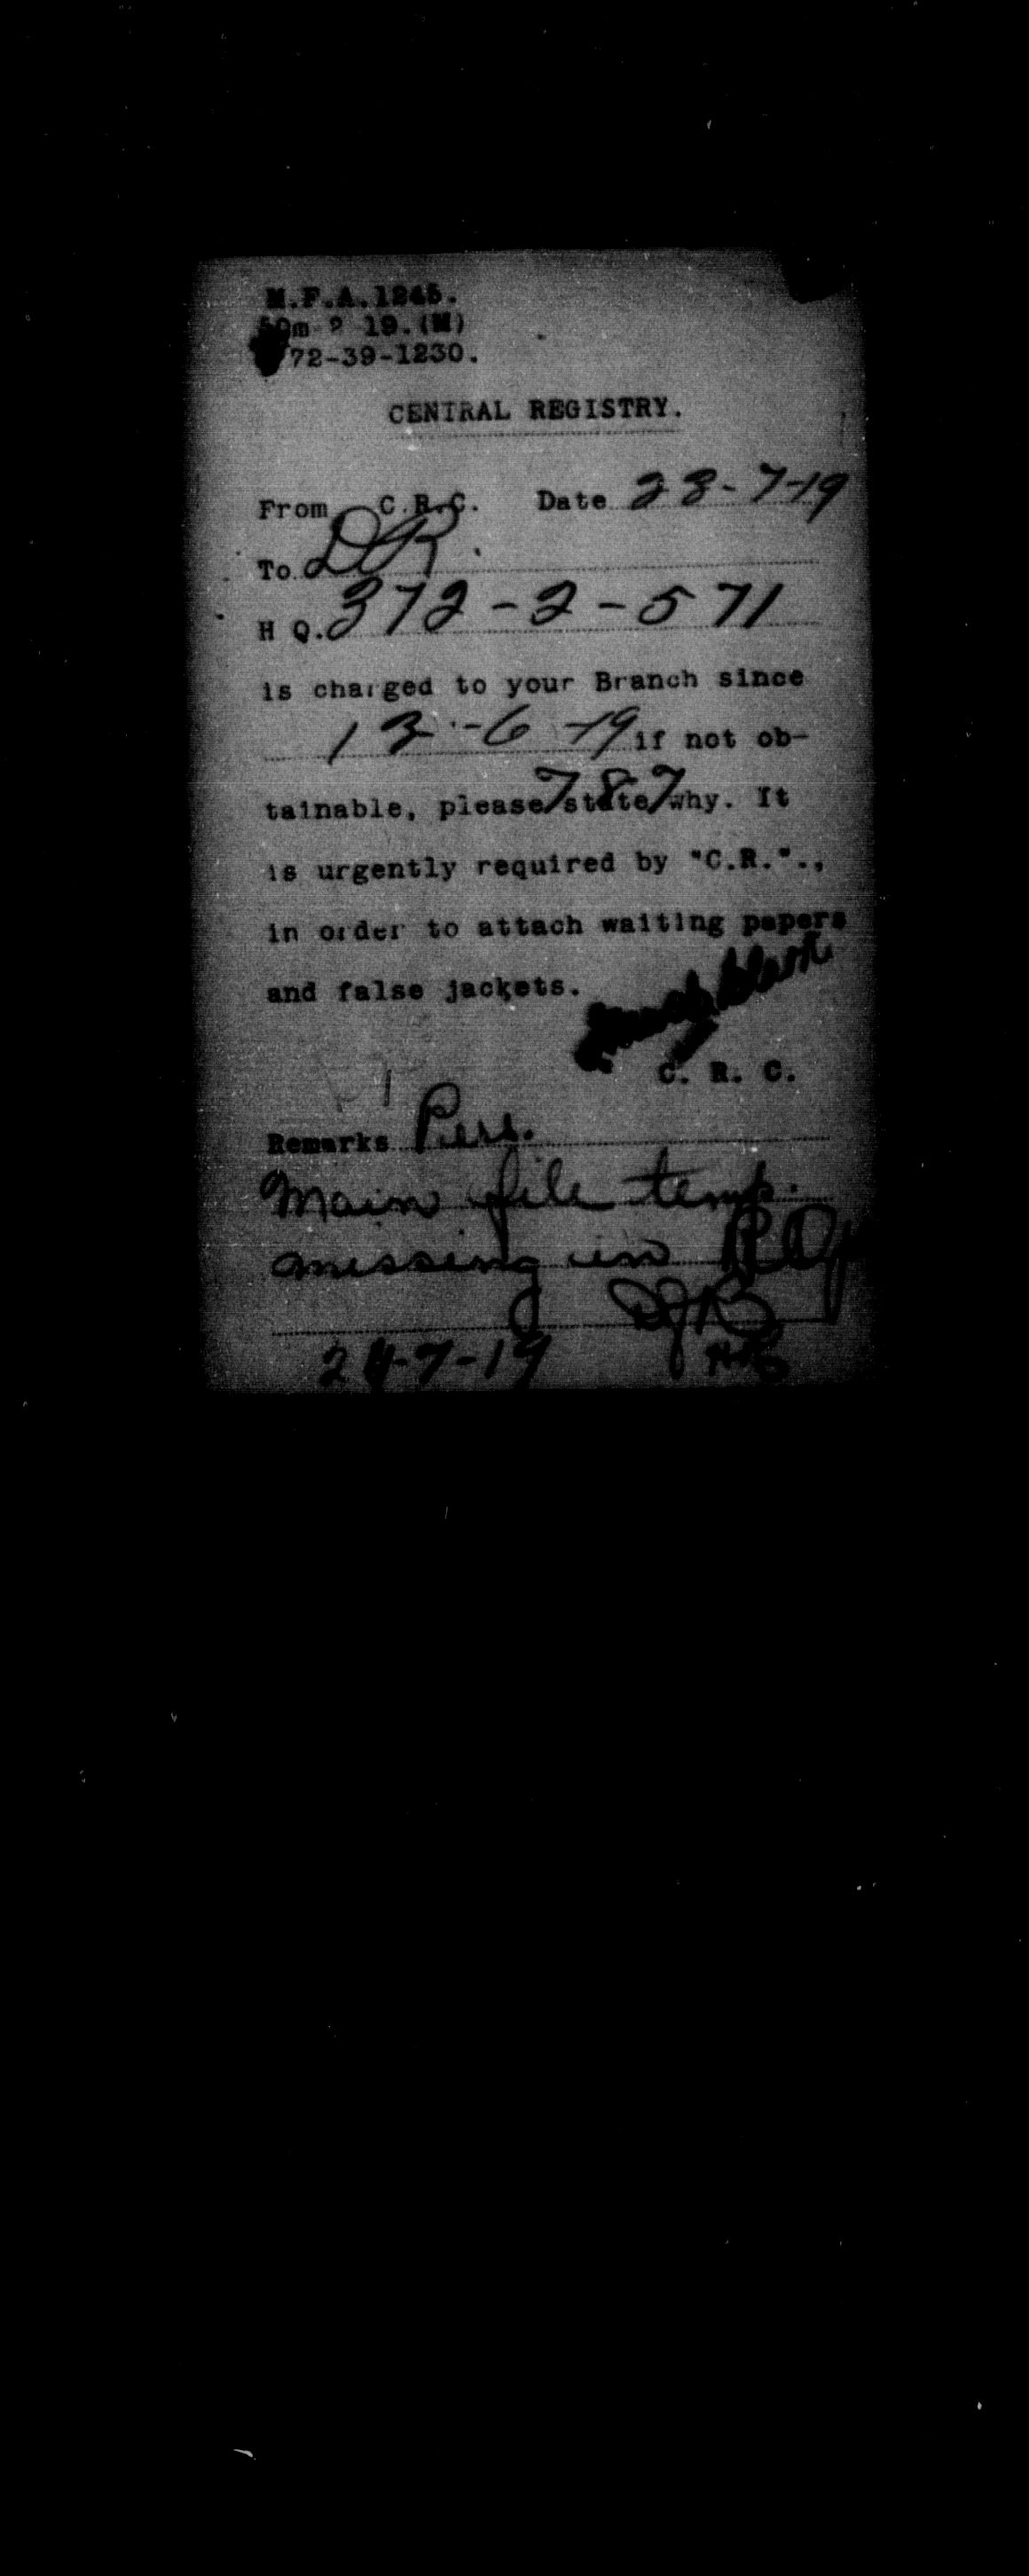 M.F.A.1245.
50m 2 19.(M)
72-39-1230.
CENTRAL REGISTRY.
From C.R.C. Date 23-7-19
To DR
H Q. 372-2-571
is charged to your Branch since
13-6-19 if not ob-
tainable, please state why. It
787
is urgently required by "C.R.".,
in order to attach waiting papers
and false jackets.
C. R. C.
Remarks
Main file temp.
missing in
24-7-19